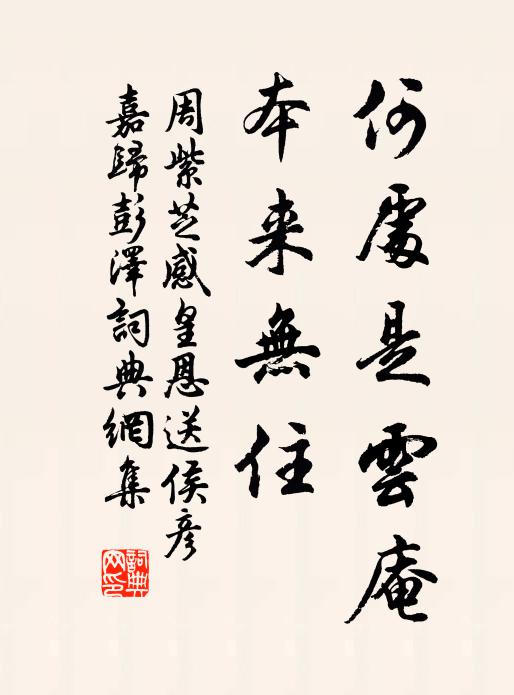 何處是雲庵
本來無住
周紫芝感皇恩送侯彥
嘉歸彭澤詞典網集
詞典
网印